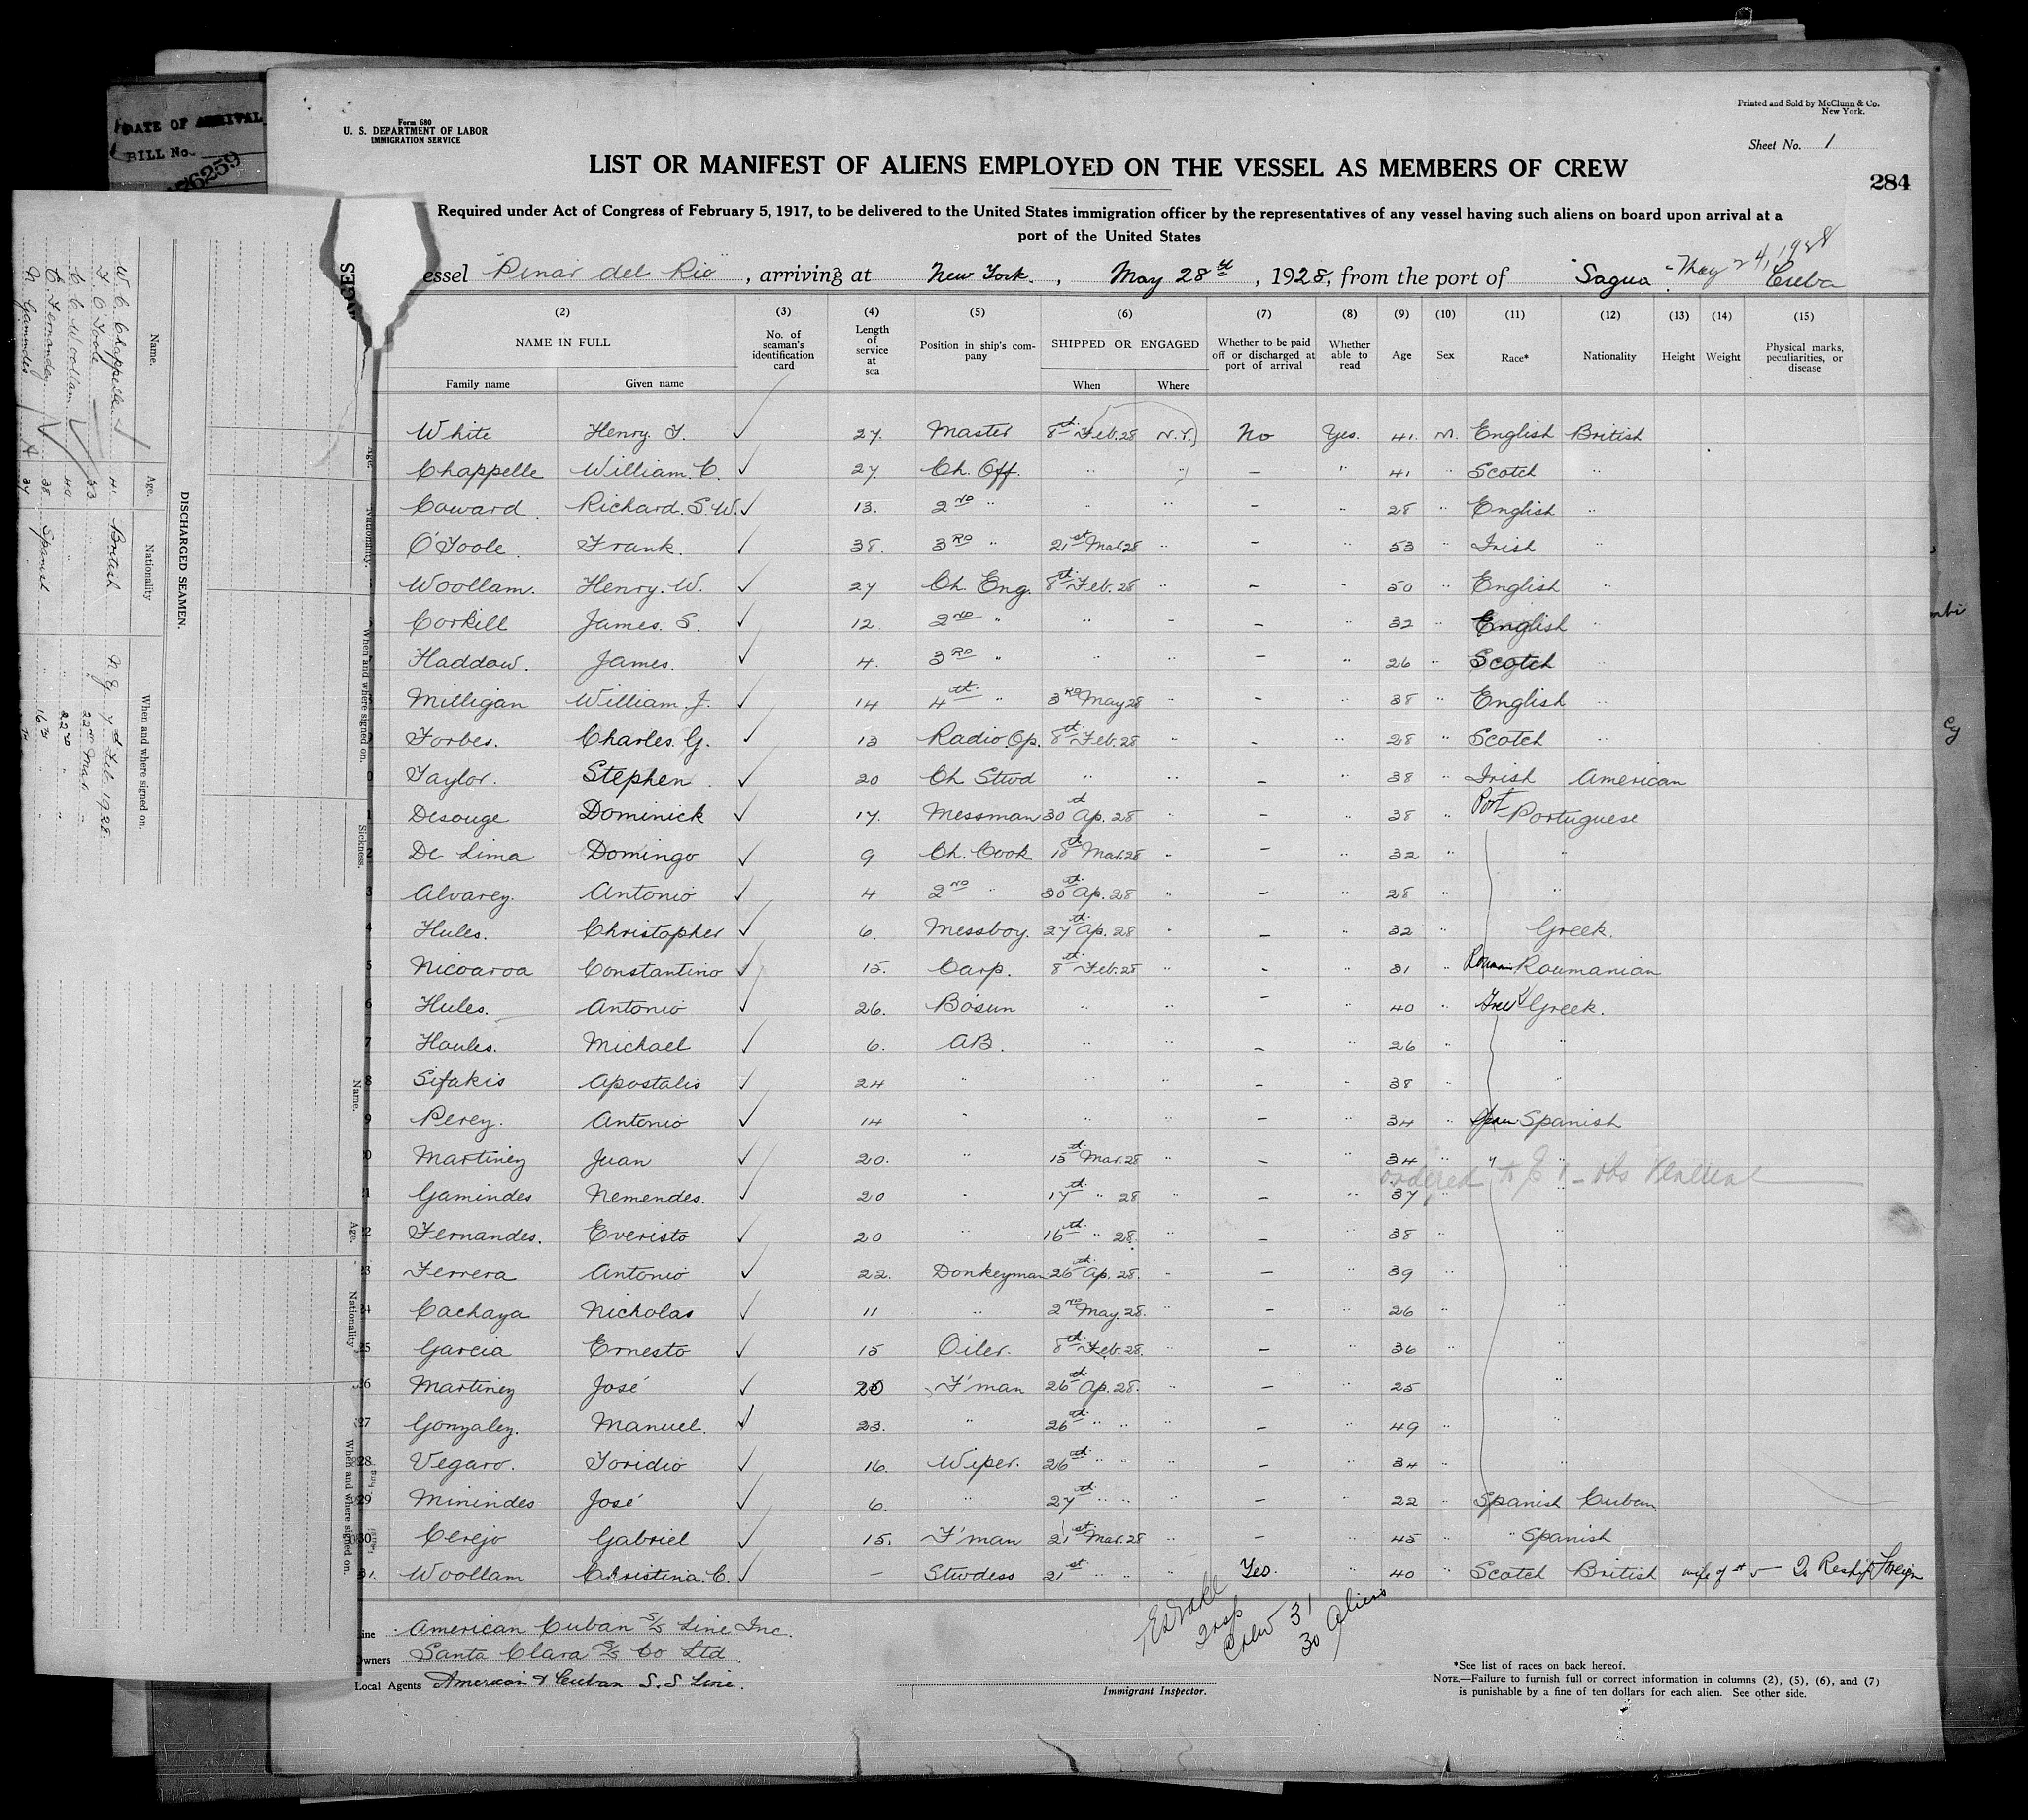 DATE OF ARRIVAL
BILL No.
76259
Form 680
U. S. DEPARTMENT OF LABOR
IMMIGRATION SERVICE
Printed and Sold by McClunn & Co.
New York.
Sheet No. 1
LIST OR MANIFEST OF ALIENS EMPLOYED ON THE VESSEL AS MEMBERS OF CREW
284
Required under Act of Congress of February 5, 1917, to be delivered to the United States immigration officer by the representatives of any vessel having such aliens on board upon arrival at a
port of the United States
May 24, 1928
essel "Pinar del Rio", arriving at New York., May 28th, 1928, from the port of Sagua Cuba
(2) (3) (4) (5) (6) (7) (8) (9) (10) (11) (12) (13) (14) (15)
NAME IN FULL No. of seaman's identification card Length of service at sea Position in ship's company SHIPPED OR ENGAGED Whether to be paid off or discharged at port of arrival Whether able to read Age Sex Race* Nationality Height Weight Physical marks, peculiarities, or disease
Family name Given name When Where
White Henry. T. ✓ 27. Master 8th Feb. 28 N.Y. No Yes. 41. M. English British
Chappelle William. C. ✓ 27. Ch. Off. " " – " 41 " Scotch "
Coward Richard. S. W. ✓ 13. 2nd " " " – " 28 " English "
O'Toole. Frank. ✓ 38. 3rd " 21st Mar. 28 " – " 53 " Irish "
Woollam. Henry. W. ✓ 27 Ch. Eng. 8th Feb. 28 " – " 50 " English "
Corkill James. S. ✓ 12. 2nd " " " – " 32 " English "
Haddow. James. ✓ 4. 3rd " " " – " 26 " Scotch "
Milligan William. J. ✓ 14 4th " 3rd May 28 " – " 38 " English "
Forbes. Charles. G. ✓ 13 Radio. Op. 8th Feb. 28 " – " 28 " Scotch "
Taylor. Stephen. ✓ 20 Ch Stwd " " – " 38 " Irish American
Desouge Dominick ✓ 17. Messman 30th Ap. 28 " – " 38 " Port Portuguese
De Lima Domingo ✓ 9 Ch. Cook 18th Mar. 28 " – " 32 " "
Alvarez. Antonio ✓ 4 2nd " 30th Ap. 28 " – " 28 " "
Hules. Christopher ✓ 6. Messboy. 27th Ap. 28 " – " 32 " Greek.
Nicoaroa Constantino ✓ 15. Carp. 8th Feb. 28 " – " 31 " Rouman Roumanian
Hules. Antonio ✓ 26. Bosun " " – " 40 " Greek.
Houles. Michael ✓ 6. AB. " " – " 26 " "
Sifakis Apostalis ✓ 24 " " " – " 38 " "
Perez. Antonio ✓ 14 " " " – " 34 " Span Spanish
Martinez Juan ✓ 20. " 15th Mar. 28 " – " 34 " " "
ordered to E I – obs Venereal
Gamindes Nemendes. ✓ 20 " 17th " 28 " – " 37 " "
Fernandes. Everisto ✓ 20 " 16th " 28. " – " 38 " "
Ferrera Antonio ✓ 22. Donkeyman 26th Ap. 28. " – " 39 " "
Cachaya Nicholas ✓ 11 " 2nd May. 28. " – " 26 " "
Garcia Ernesto ✓ 15 Oiler. 8th Feb. 28. " – " 36 " "
Martinez José ✓ 20 F'man 26th Ap. 28. " – " 25 " "
Gonzalez. Manuel. ✓ 23. " 26th " " " – " 49 " "
Vegaro. Toridio ✓ 16. Wiper. 26th " " " – " 34 " "
Minindes José ✓ 6. " 27th " " " – " 22 " Spanish Cuban
Cerejo Gabriel ✓ 15. F'man 21st Mar. 28 " – " 45 " " Spanish
Woollam Christina. C. ✓ – Stwdess 21st " " " Yes. " 40 " Scotch British wife of # 5 – To Reship Foreign
Crew 31
30 Aliens
Line American Cuban S/S Line Inc.
Owners Santa Clara S/S Co Ltd.
Local Agents American & Cuban S.S Line.
Immigrant Inspector.
*See list of races on back hereof.
NOTE.—Failure to furnish full or correct information in columns (2), (5), (6), and (7)
is punishable by a fine of ten dollars for each alien. See other side.
DISCHARGED SEAMEN.
Name. Age. Nationality When and where signed on.
W. C. Chappelle 41. British N.Y. Feb. 1928.
F. O'Toole 53 " 22nd Mar. "
C. C. Woollam. 40 " 22nd "
E. Fernandez 38. Spanish 16th "
N. Gamindes 37
Age. Nationality. When and where signed on. Sickness.
Name. Age. Nationality When and where signed on.